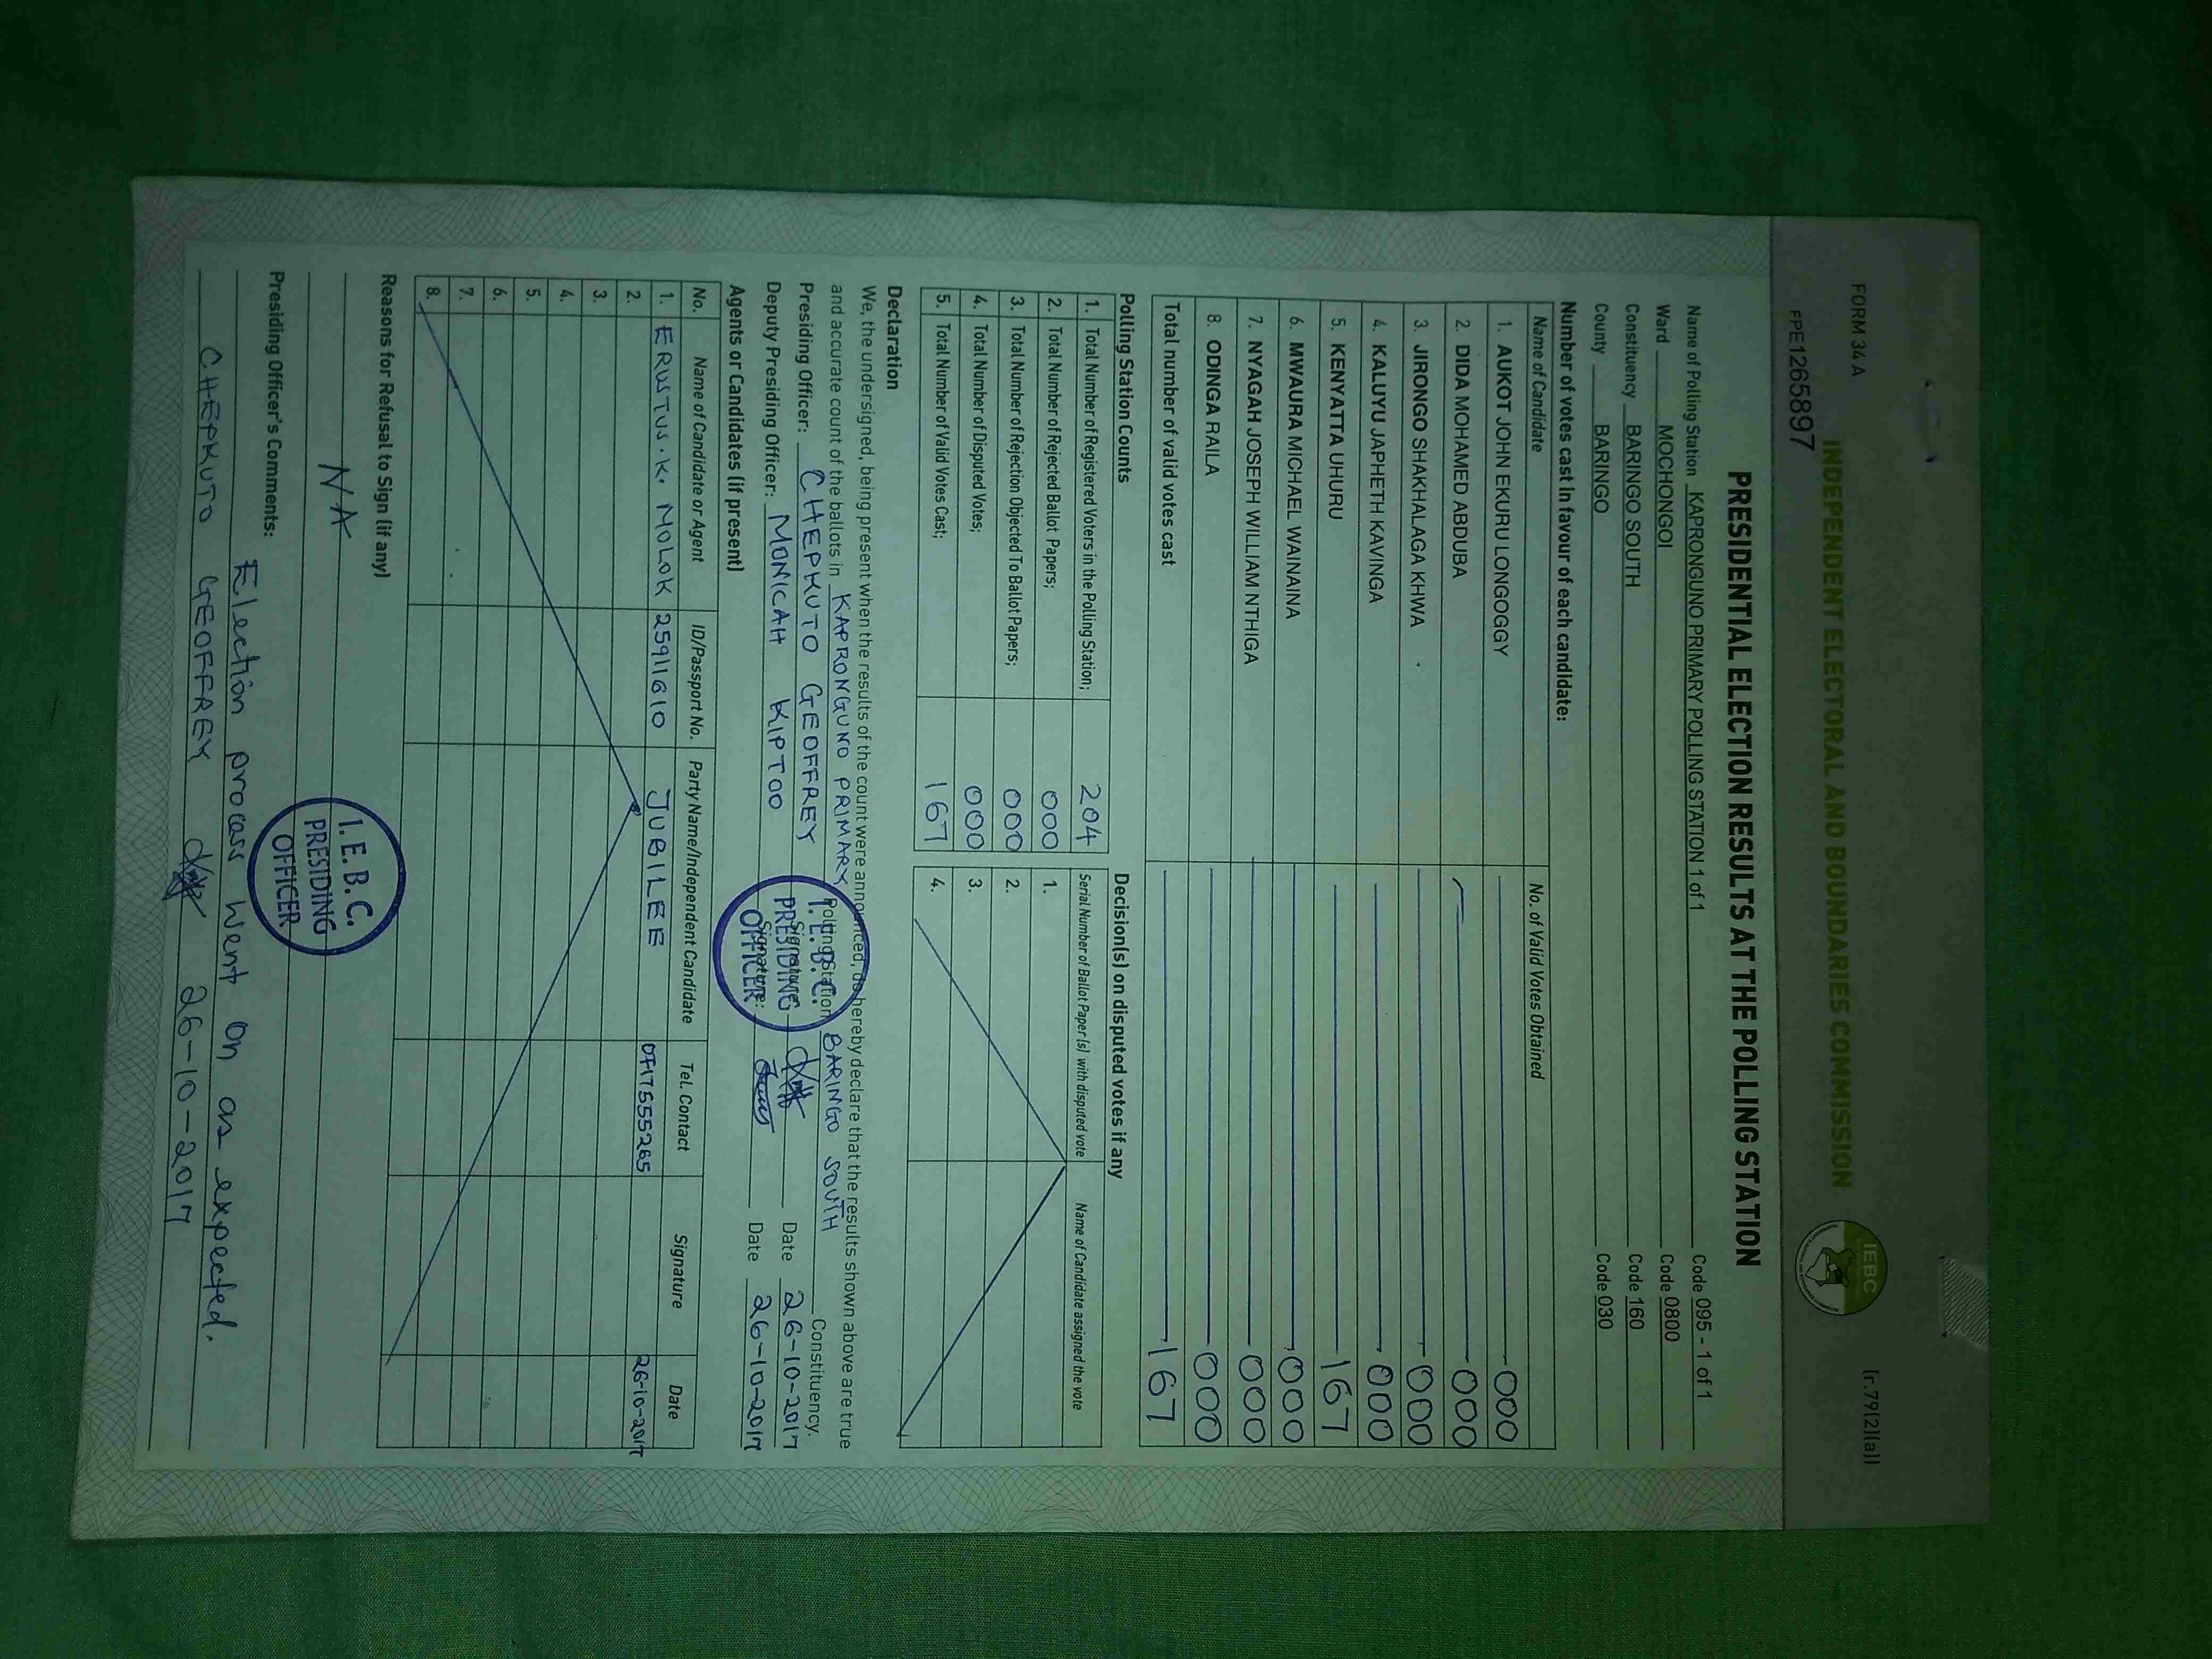 FORM 34 A
(r.79(2)(a))
INDEPENDENT ELECTORAL AND BOUNDARIES COMMISSION
IEBC
FPE1265897
PRESIDENTIAL ELECTION RESULTS AT THE POLLING STATION
Name of Polling Station KAPRONGUNO PRIMARY POLLING STATION 1 of 1 Code 095 - 1 of 1
Ward MOCHONGOI Code 0800
Constituency BARINGO SOUTH Code 160
County BARINGO Code 030
Number of votes cast in favour of each candidate:
Name of Candidate No. of Valid Votes Obtained
1. AUKOT JOHN EKURU LONGOGGY 000
2. DIDA MOHAMED ABDUBA 000
3. JIRONGO SHAKHALAGA KHWA 000
4. KALUYU JAPHETH KAVINGA 000
5. KENYATTA UHURU 167
6. MWAURA MICHAEL WAINAINA 000
7. NYAGAH JOSEPH WILLIAM NTHIGA 000
8. ODINGA RAILA 000
Total number of valid votes cast 167
Polling Station Counts
1. Total Number of Registered Voters in the Polling Station; 204
2. Total Number of Rejected Ballot Papers; 000
3. Total Number of Rejection Objected To Ballot Papers; 000
4. Total Number of Disputed Votes; 000
5. Total Number of Valid Votes Cast; 167
Decision(s) on disputed votes if any
Serial Number of Ballot Paper (s) with disputed vote Name of Candidate assigned the vote
1.
2.
3.
4.
Declaration
We, the undersigned, being present when the results of the count were announced, do hereby declare that the results shown above are true
and accurate count of the ballots in KAPRONGUNO PRIMARY Polling Station BARINGO SOUTH Constituency.
Presiding Officer: CHEPKUTO GEOFFREY Signature: Date 26-10-2017
Deputy Presiding Officer: MONICAH KIPTOO Signature: Date 26-10-2017
I. E. B. C.
PRESIDING
OFFICER
Agents or Candidates (if present)
No. Name of Candidate or Agent ID/Passport No. Party Name/Independent Candidate Tel. Contact Signature Date
1. ERUSTUS . K . MOLOK 25911610 JUBILEE 0717555265 26-10-2017
2.
3.
4.
5.
6.
7.
8.
Reasons for Refusal to Sign (if any)
N-A
I. E. B. C.
PRESIDING
OFFICER
Presiding Officer's Comments:
Election process went on as expected.
CHEPKUTO GEOFFREY 26-10-2017